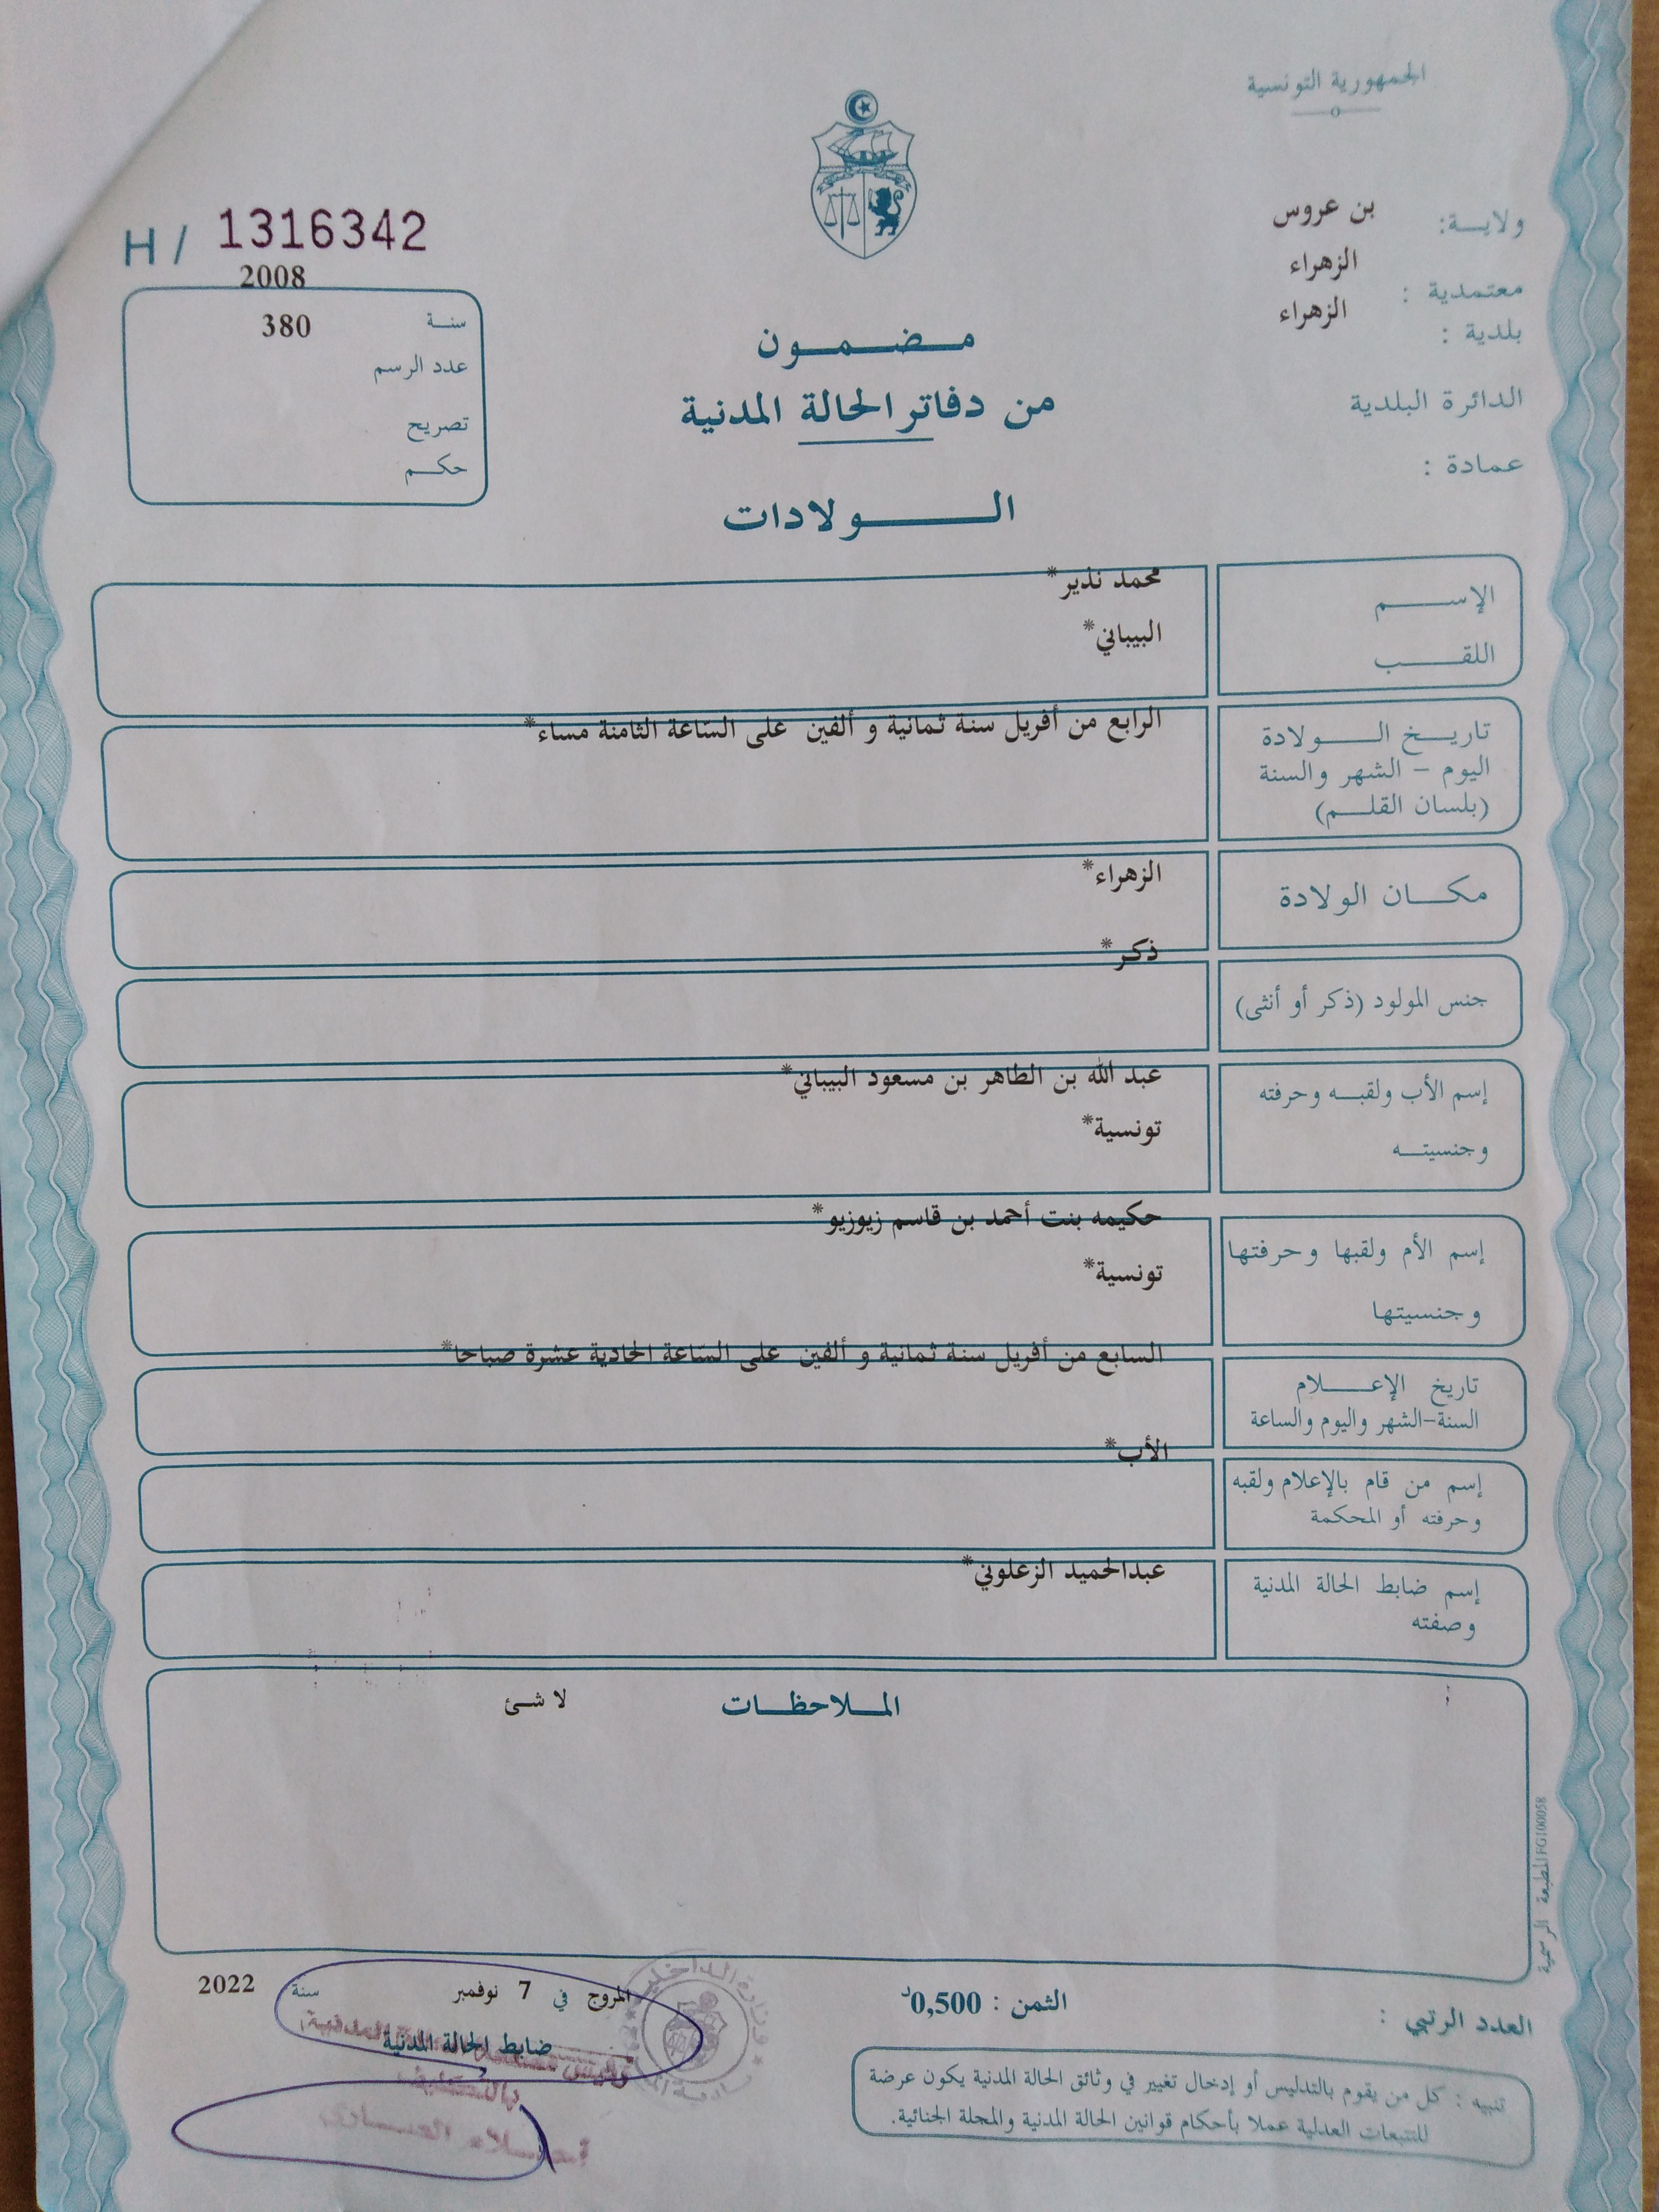 الجمهورية التونسية
ولايـــة: بن عروس
معتمدية : الزهراء
بلدية : الزهراء
الدائرة البلدية
عمادة :
H / 1316342
2008
سنـة 380
عدد الرسم
تصريح
حكـم
مـضـمـون
من دفاتر الحالة المدنية
الـولادات
الإســـم محمد نذير*
اللقـــب البيباني*
تاريـخ الـــولادة الرابع من أفريل سنة ثمانية و ألفين على السّاعة الثامنة مساء*
اليوم - الشهر والسنة
(بلسان القلـم)
مكــان الولادة الزهراء*
جنس المولود (ذكر أو أنثى) ذكر*
إسم الأب ولقبـه وحرفته عبد الله بن الطاهر بن مسعود البيباني*
وجنسيتـه تونسية*
إسم الأم ولقبها وحرفتها حكيمه بنت أحمد بن قاسم زيوزيو*
وجنسيتها تونسية*
تاريخ الإعـــلام السابع من أفريل سنة ثمانية و ألفين على السّاعة الحادية عشرة صباحا*
السنة-الشهر واليوم والساعة
إسم من قام بالإعلام ولقبه الأب*
وحرفته أو المحكمة
إسم ضابط الحالة المدنية عبدالحميد الزعلوني*
وصفته
المـلاحظـات لا شئ
المطبعة الرسمية FG100058
العدد الرتبي :
الثمن : 0,500د
المروج في 7 نوفمبر سنة 2022
ضابط الحالة المدنية
وزارة الداخلية
تنبيه : كل من يقوم بالتدليس أو إدخال تغيير في وثائق الحالة المدنية يكون عرضة
للتتبعات العدلية عملا بأحكام قوانين الحالة المدنية والمجلة الجنائية.